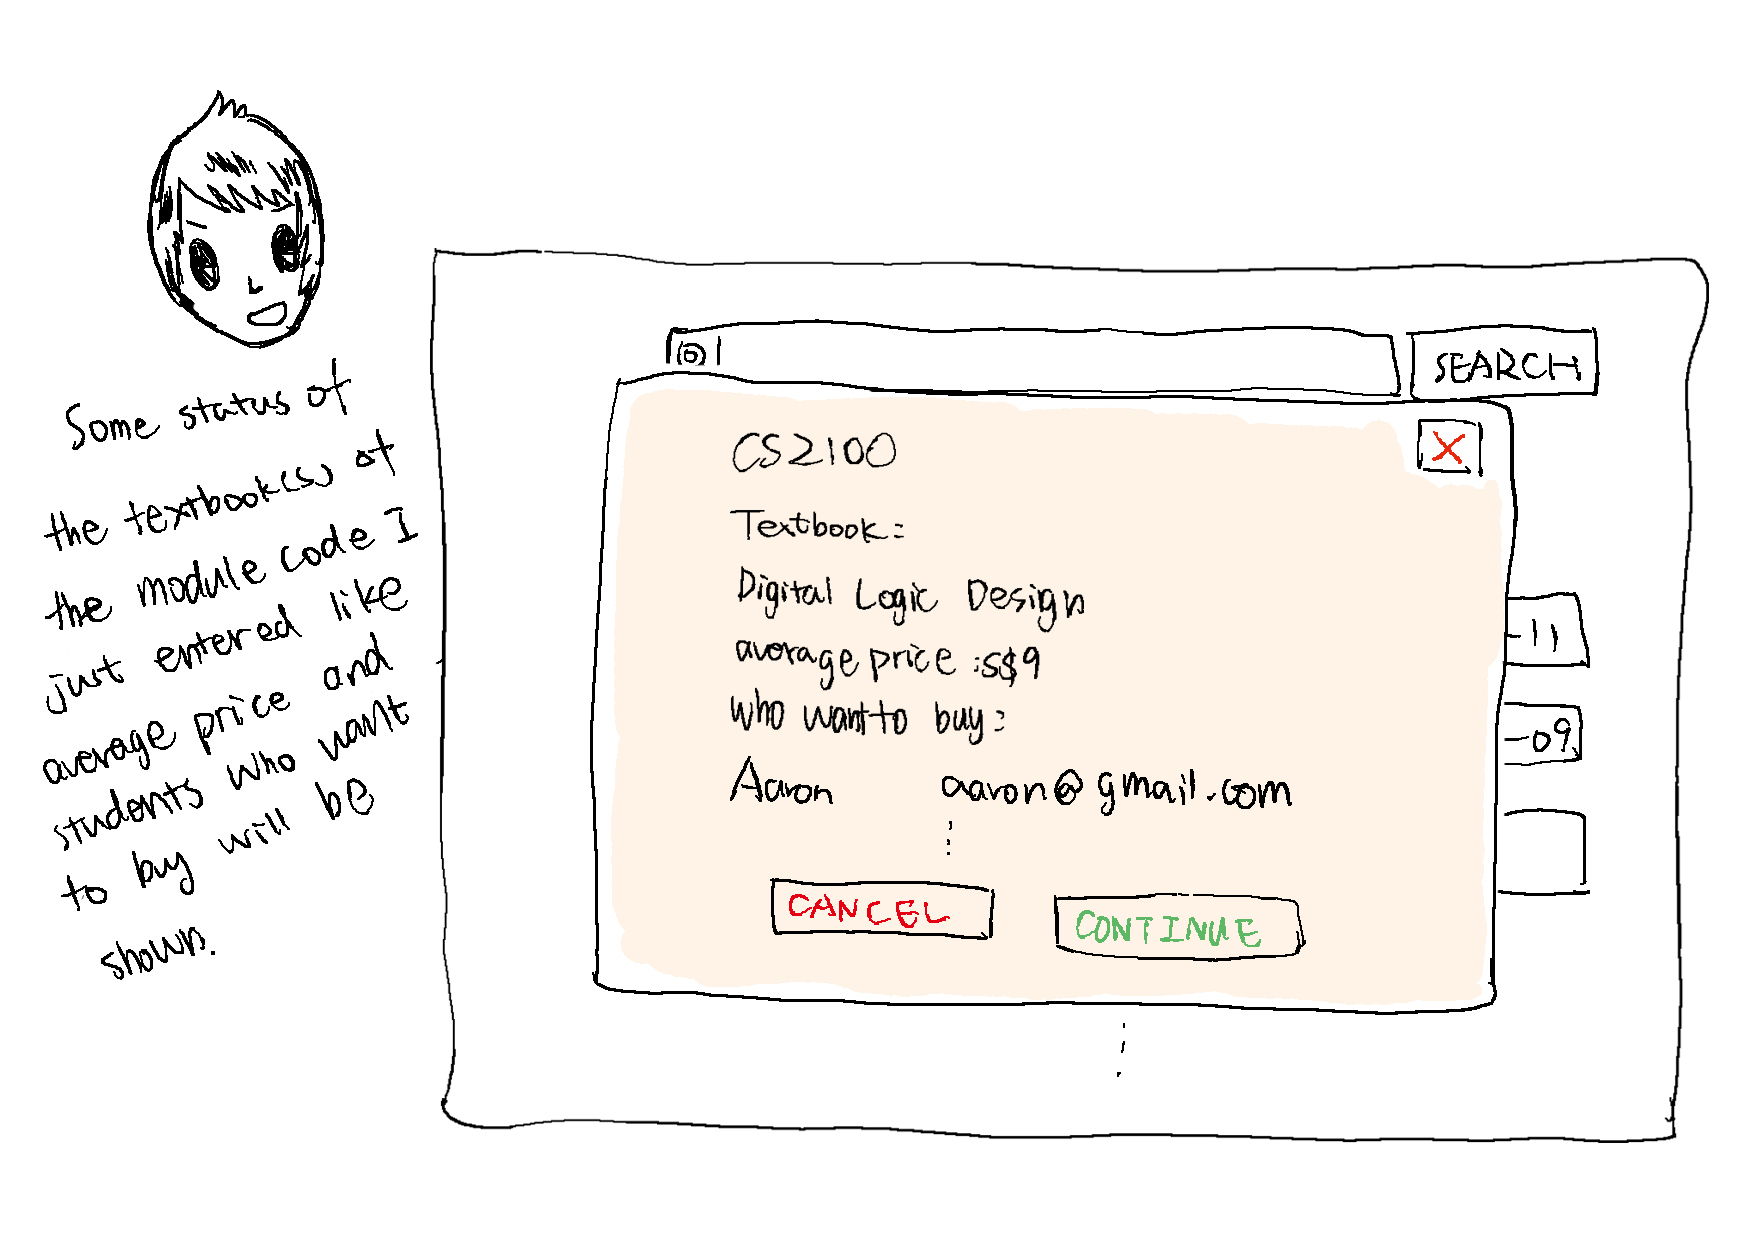 Some status of
the textbook(s) of
the module code I
just entered like
average price and
students who want
to buy will be
shown.
SEARCH
CS2100
X
Textbook:
Digital Logic Design
average price :S$9
who want to buy:
Aaron aaron@gmail.com
CANCEL
CONTINUE
-11
-09